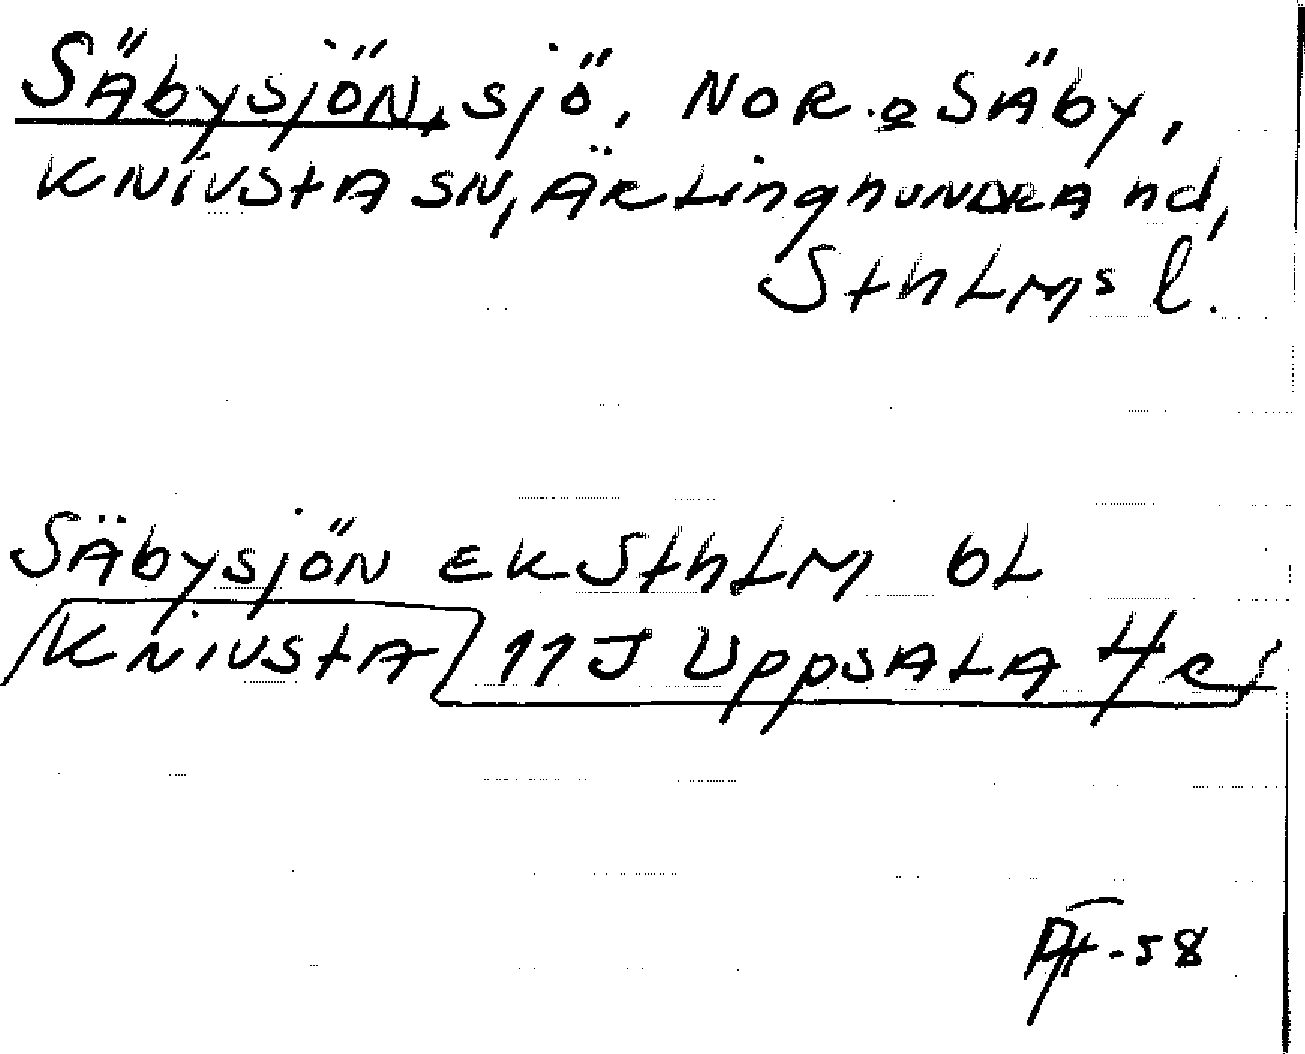 Säbysjön, sjö, NOR. o Säby,
Knivsta sn, Ärlinghundra hd,
Sthlms l.
Säbysjön Ek Sthlm bl
Knivsta 11J Uppsala 4 e j
-58